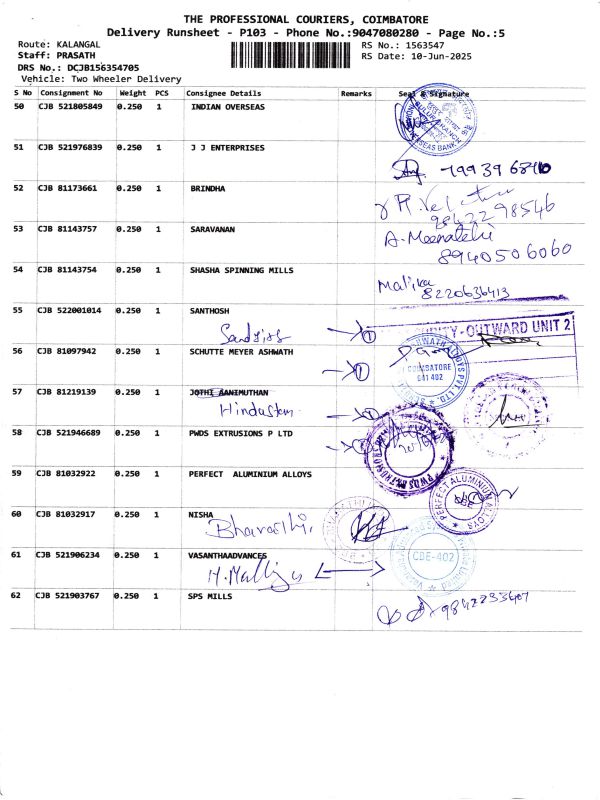 THE PROFESSIONAL COURIERS, COIMBATORE
Delivery Runsheet - P103 - Phone No.:9047080280 - Page No.:5
Route: KALANGAL
RS No.: 1563547
Staff: PRASATH
RS Date: 10-Jun-2025
DRS No.: DCJB156354705
Vehicle: Two Wheeler Delivery
S No Consignment No Weight PCS Consignee Details Remarks Seal & Signature
50 CJB 521805849 0.250 1 INDIAN OVERSEAS
51 CJB 521976839 0.250 1 J J ENTERPRISES
52 CJB 81173661 0.250 1 BRINDHA
9842298546
53 CJB 81143757 0.250 1 SARAVANAN
A. Meenatchi
8940506060
54 CJB 81143754 0.250 1 SHASHA SPINNING MILLS
Malika
8220636413
55 CJB 522001014 0.250 1 SANTHOSH
OUTWARD UNIT 2
56 CJB 81097942 0.250 1 SCHUTTE MEYER ASHWATH
COIMBATORE
641 402
57 CJB 81219139 0.250 1 JOTHI AANIMUTHAN
Hindustan
58 CJB 521946689 0.250 1 PWDS EXTRUSIONS P LTD
59 CJB 81032922 0.250 1 PERFECT ALUMINIUM ALLOYS
PERFECT ALUMINIUM ALLOYS
CBE
60 CJB 81032917 0.250 1 NISHA
Bharathi
61 CJB 521906234 0.250 1 VASANTHAADVANCES
CBE-402
62 CJB 521903767 0.250 1 SPS MILLS
9842233407